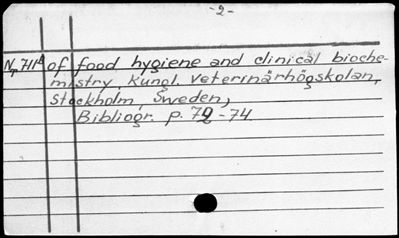 -2-
of food hygiene and clinical bioche-
mistry, Kungl. Veterinärhögskolan,
Stockholm, Sweden,
Bibliogr. p. 72-74